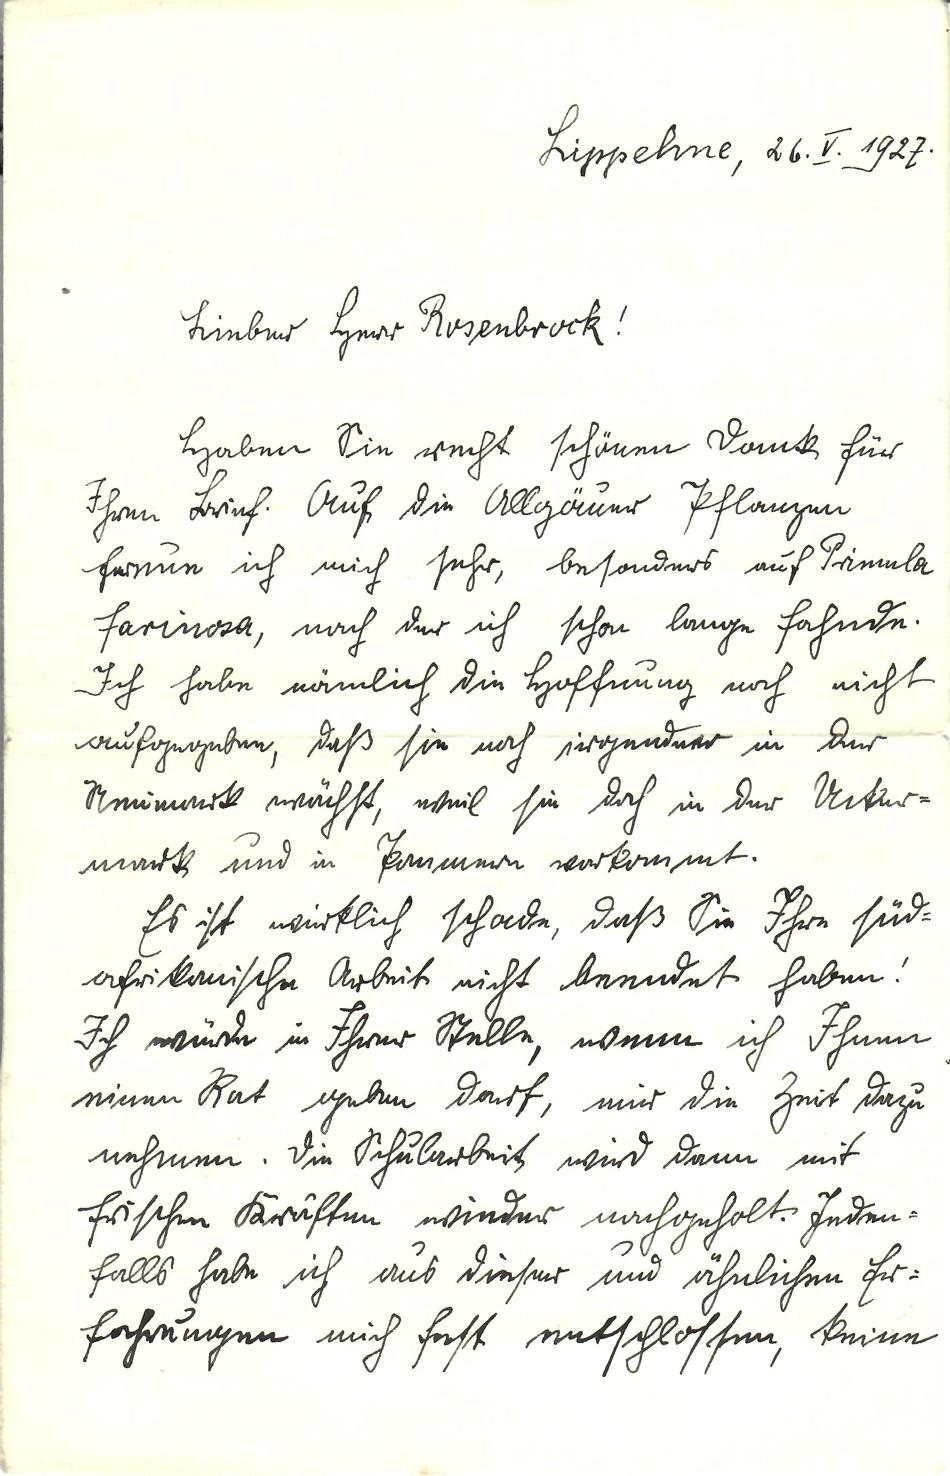 Lippehne, 26. V. 1927.
Lieber Herr Rosenbrock!
Haben Sie recht schönen Dank für
Ihren Brief. Auf die Allgäuer Pflanzen
freue ich mich sehr, besonders auf Primula
farinosa, nach der ich schon lange fahnde.
Ich habe nämlich die Hoffnung noch nicht
aufgegeben, daß sie noch irgendwo in der
Neumark wächst, weil sie doch in der Ucker=
mark und in Pommern vorkommt.
Es ist wirklich schade, daß Sie Ihre süd=
afrikanische Arbeit nicht beendet haben!
Ich würde in Ihrer Stelle, wenn ich Ihnen
einen Rat geben darf, mir die Zeit dazu
nehmen. Die Schularbeit wird dann mit
frischen Kräften wieder nachgeholt. Jeden=
falls habe ich aus dieser und ähnlichen Er=
fahrungen mich fest entschlossen, keine